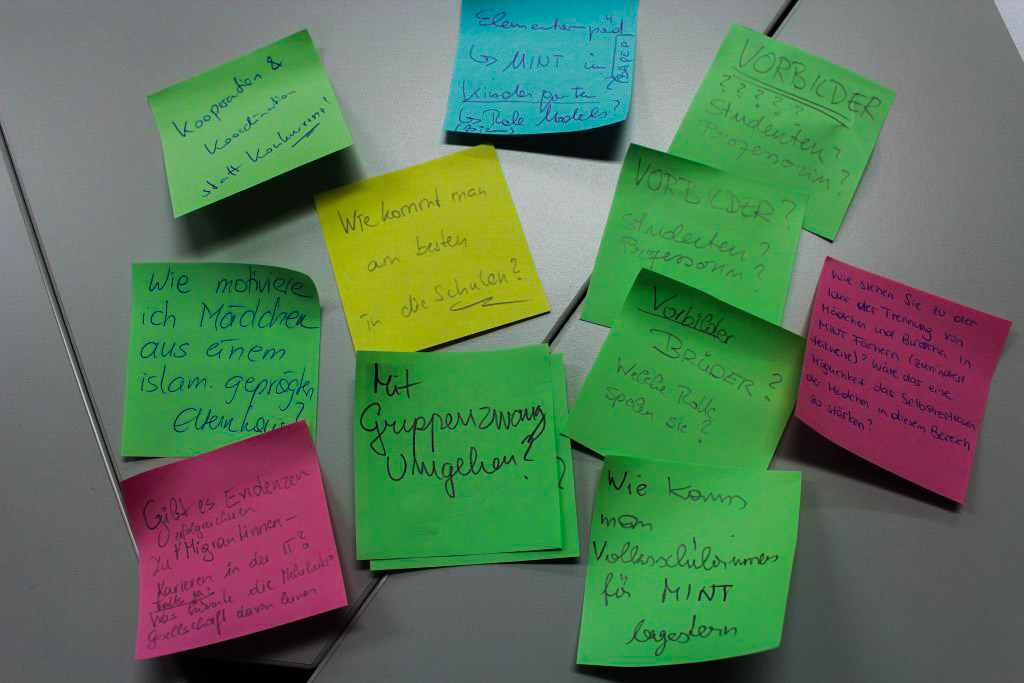 Kooperation &
Koordination
statt Konkurrenz!
Elementarpäd
↳ MINT in
BAPEP
Kindergarten?
↳ Role Models?
VORBILDER
? ? ? ? ?
Studenten?
Professorin?
Wie kommt man
am besten
in die Schulen?
VORBILDER?
Studenten?
Professorin?
Wie motiviere
ich Mädchen
aus einem
islam. geprägten
Elternhaus?
Mit
Gruppenzwang
Umgehen?
?
Vorbilder
BRÜDER?
Welche Rolle
spielen sie?
Wie stehen Sie zu der
Idee der Trennung von
Mädchen und Burschen in
MINT Fächern (zumindest
teilweise)? Wäre das eine
Möglichkeit das Selbstvertrauen
der Mädchen in diesem Bereich
zu stärken?
Gibt es Evidenzen
zu erfolgreichen
Migrantinnen-
Karieren in der IT?
Falls ja:
Was könnte die Mehrheits
Gesellschaft davon lernen
Wie kann
man
Volksschülerinnen
für MINT
begestern